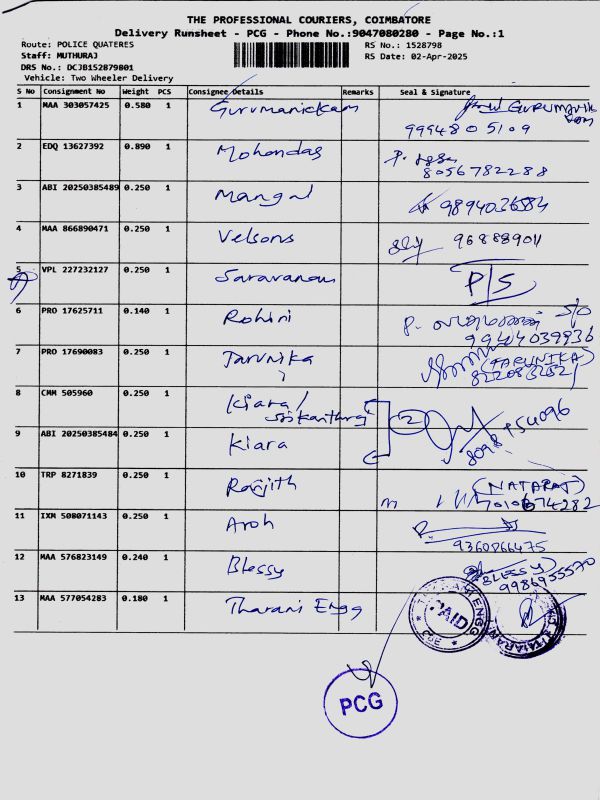 THE PROFESSIONAL COURIERS, COIMBATORE
Delivery Runsheet - PCG - Phone No.:9047080280 - Page No.:1
Route: POLICE QUATERES
RS No.: 1528798
Staff: MUTHURAJ
RS Date: 02-Apr-2025
DRS No.: DCJB152879801
Vehicle: Two Wheeler Delivery
S No Consignment No Weight PCS Consignee Details Remarks Seal & Signature
1 MAA 303057425 0.580 1 Gurumanickam GURUMANIK
9994805109
2 EDQ 13627392 0.890 1 Mohandas P.
8056782288
3 ABI 20250385489 0.250 1 Mangal 9894036584
4 MAA 866890471 0.250 1 Velsons 96888901
5 VPL 227232127 0.250 1 Saravanan P/S
6 PRO 17625711 0.140 1 Rohini P. S/O
9944039936
7 PRO 17690083 0.250 1 Tarunika (TARUNIKA)
8 CMM 505960 0.250 1 Kiara/
Srikanth 2
9 ABI 20250385484 0.250 1 Kiara
10 TRP 8271839 0.250 1 Ranjith (NATARAJ)
11 IXM 508071143 0.250 1 Aroh
9360866475
12 MAA 576823149 0.240 1 Blessy BLESSY
9986955570
13 MAA 577054283 0.180 1 Tharani Engg
PAID
PCG